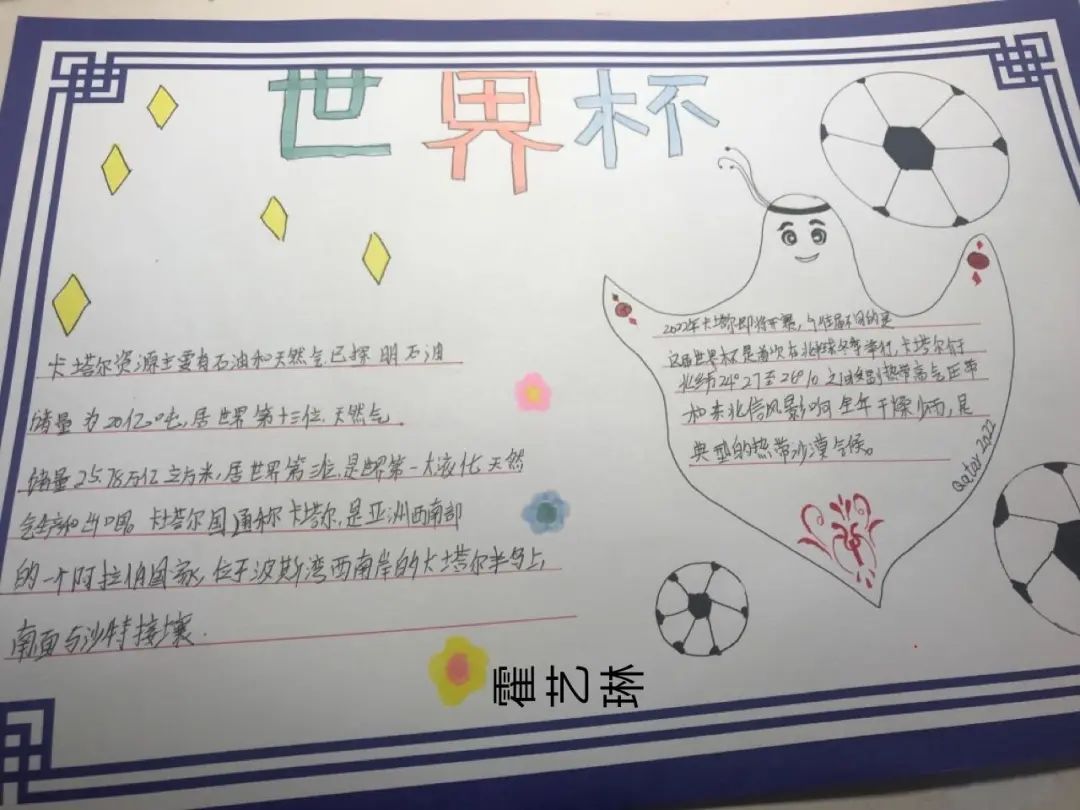 世界杯
卡塔尔资源主要有石油和天然气已探明石油
储量为20亿吨,居世界第十三位.天然气.
储量25.78万亿立方米,居世界第三位,是世界第一大液化天然
气生产和出口国。卡塔尔国通称卡塔尔,是亚洲西南部
的一个阿拉伯国家,位于波斯湾西南岸的卡塔尔半岛上,
南面与沙特接壤.
2022年卡塔尔即将开赛,与往届不同的是
这届世界杯是首次在北半球冬季举行,卡塔尔位于
北纬24°27至26°10之间受到热带高气压带
和东北信风影响全年干燥少雨,是
典型的热带沙漠气候。
Qatar 2022
霍艺琳